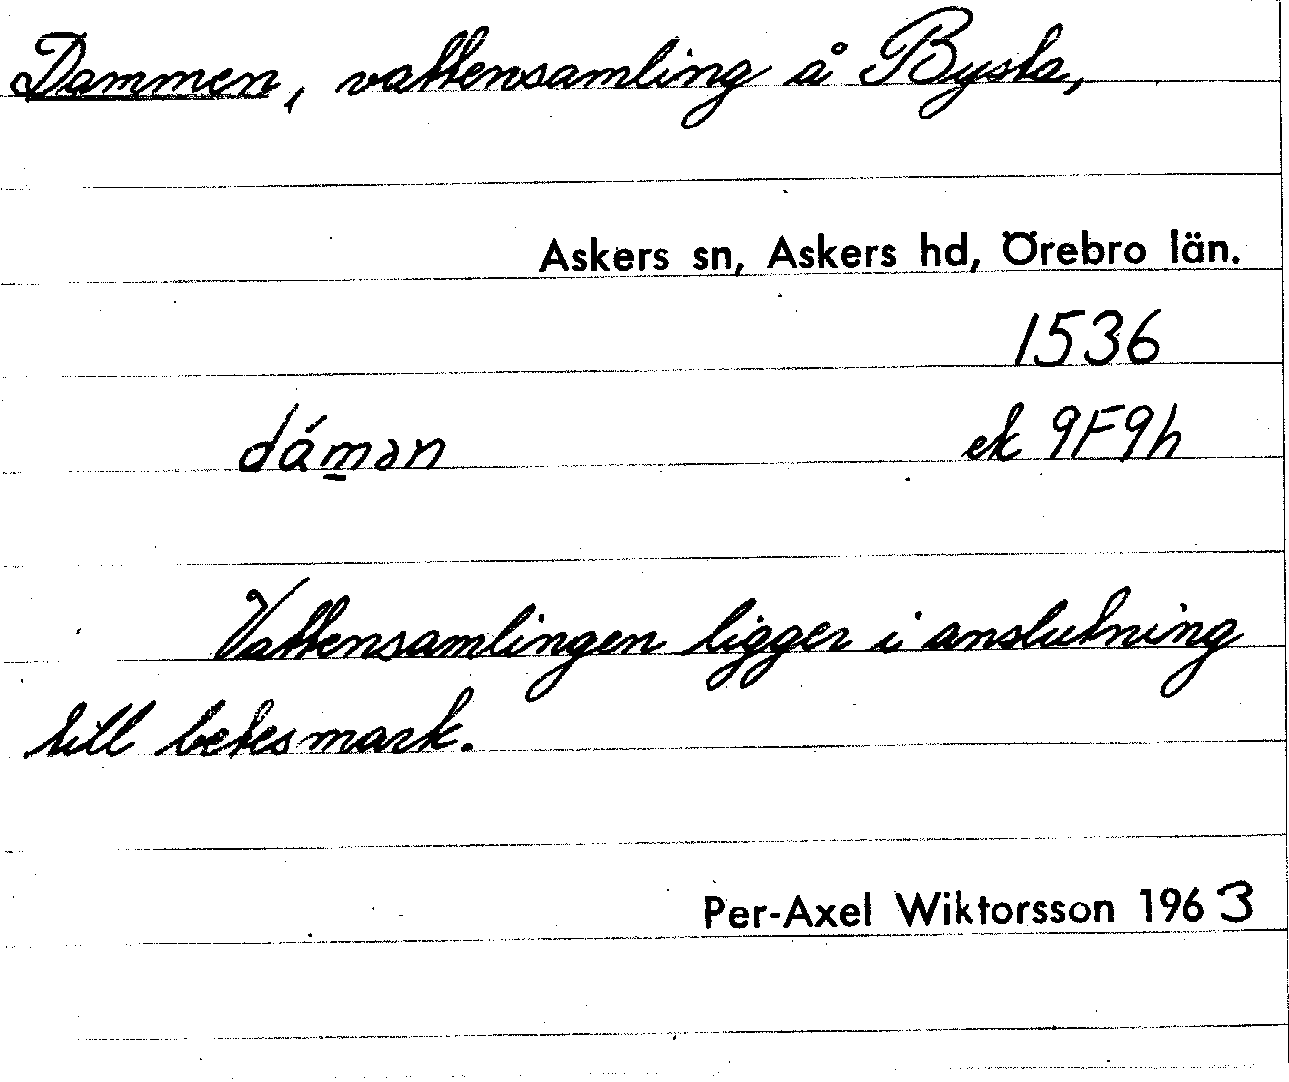 Dammen, vattensamling å Bysta,
Askers sn, Askers hd, Örebro län.
1536
dám̱ən ek 9F9h
Vattensamlingen ligger i anslutning
till betesmark.
Per-Axel Wiktorsson 1963